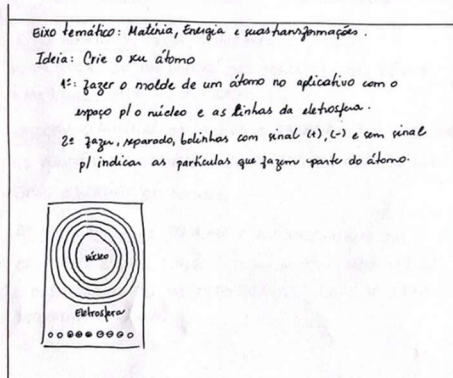 Eixo temático: Matéria, Energia e suas transformações.
Ideia: Crie o seu átomo
1º: fazer o molde de um átomo no aplicativo com o
espaço p/ o núcleo e as linhas da eletrosfera.
2º fazer, separado, bolinhas com sinal (+), (-) e sem sinal
p/ indicar as partículas que fazem parte do átomo.
Núcleo
Eletrosfera